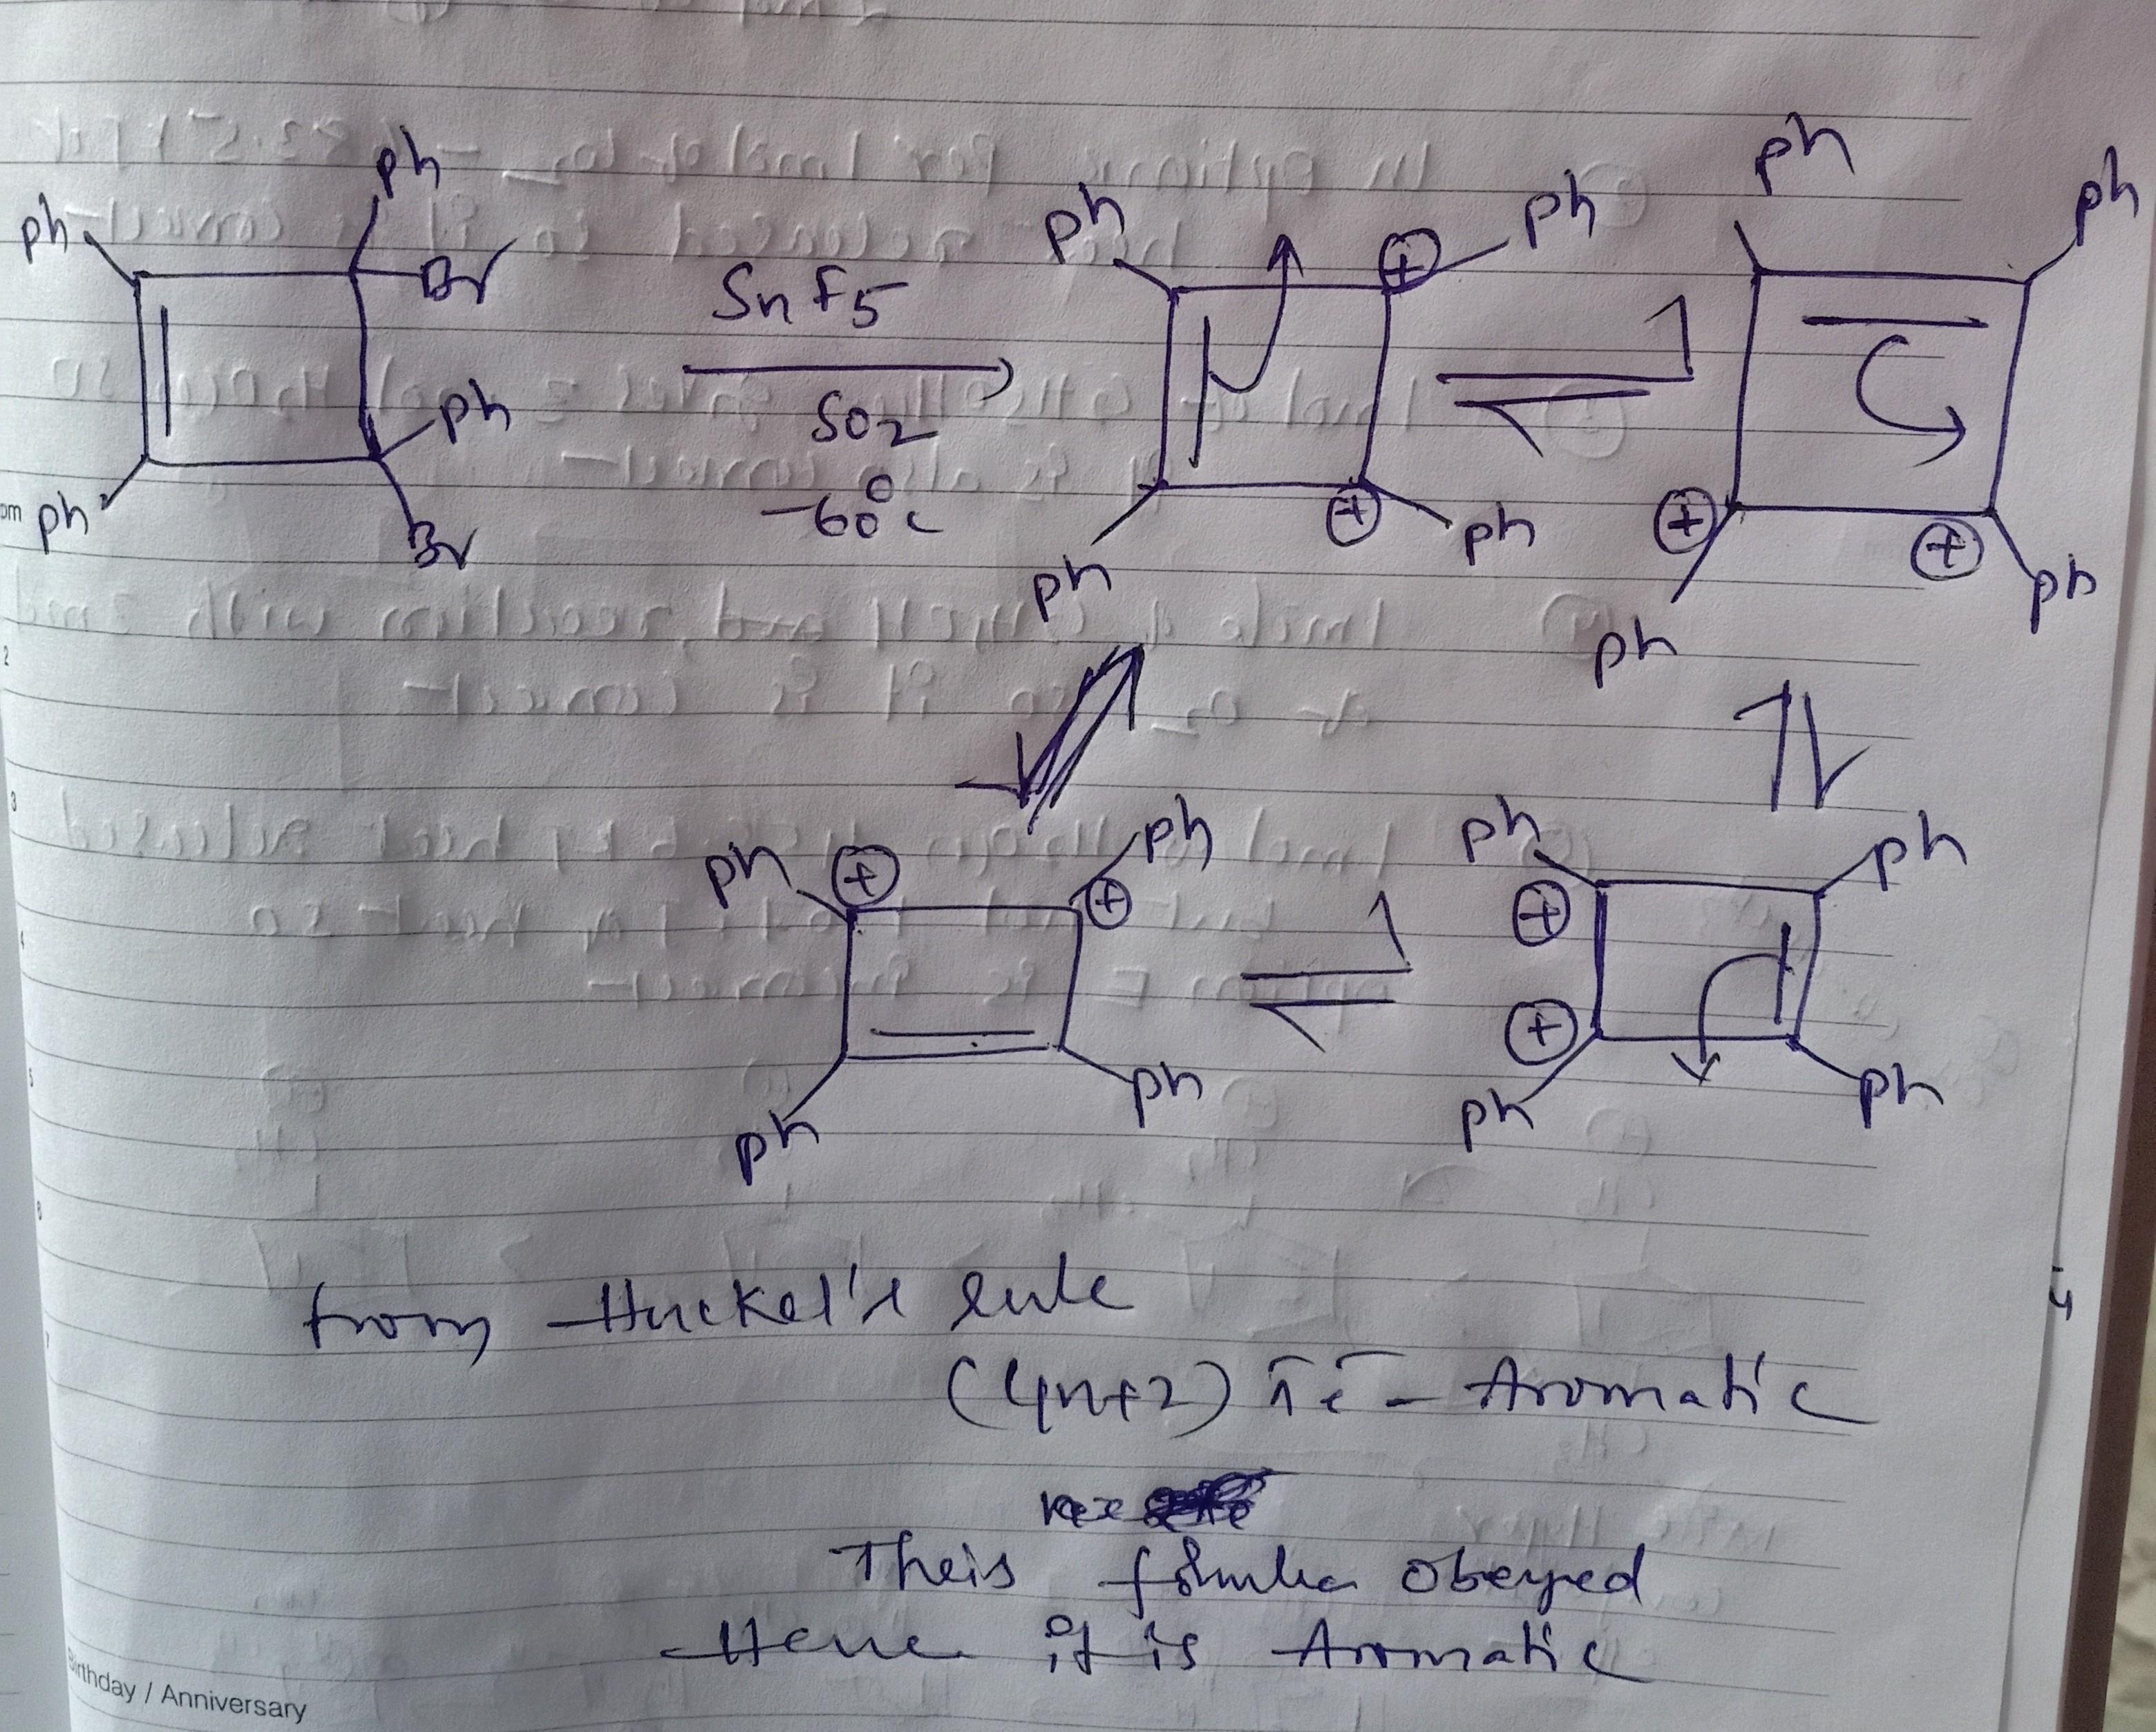 ph ph
Br
ph
ph Br
SnF5
SO2
-60°C
ph ⊕ ph
⊕ ph
ph
ph ph
⊕ ⊕
ph ph
ph ⊕ ⊕ ph
ph ph
ph ph
⊕
⊕
ph ph
from Huckel's rule
(4n+2) πe⁻ - Aromatic
Theis fomula obeyed
Hence it is Aromatic
Birthday / Anniversary